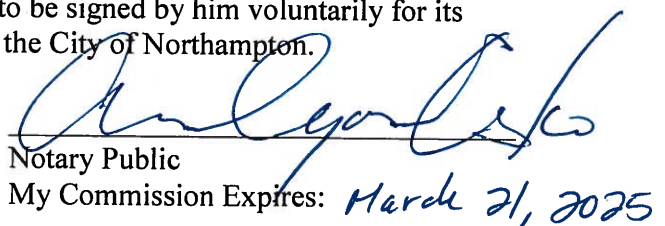 to be signed by him voluntarily for its
the City of Northampton.
Notary Public
My Commission Expires: March 21, 2025